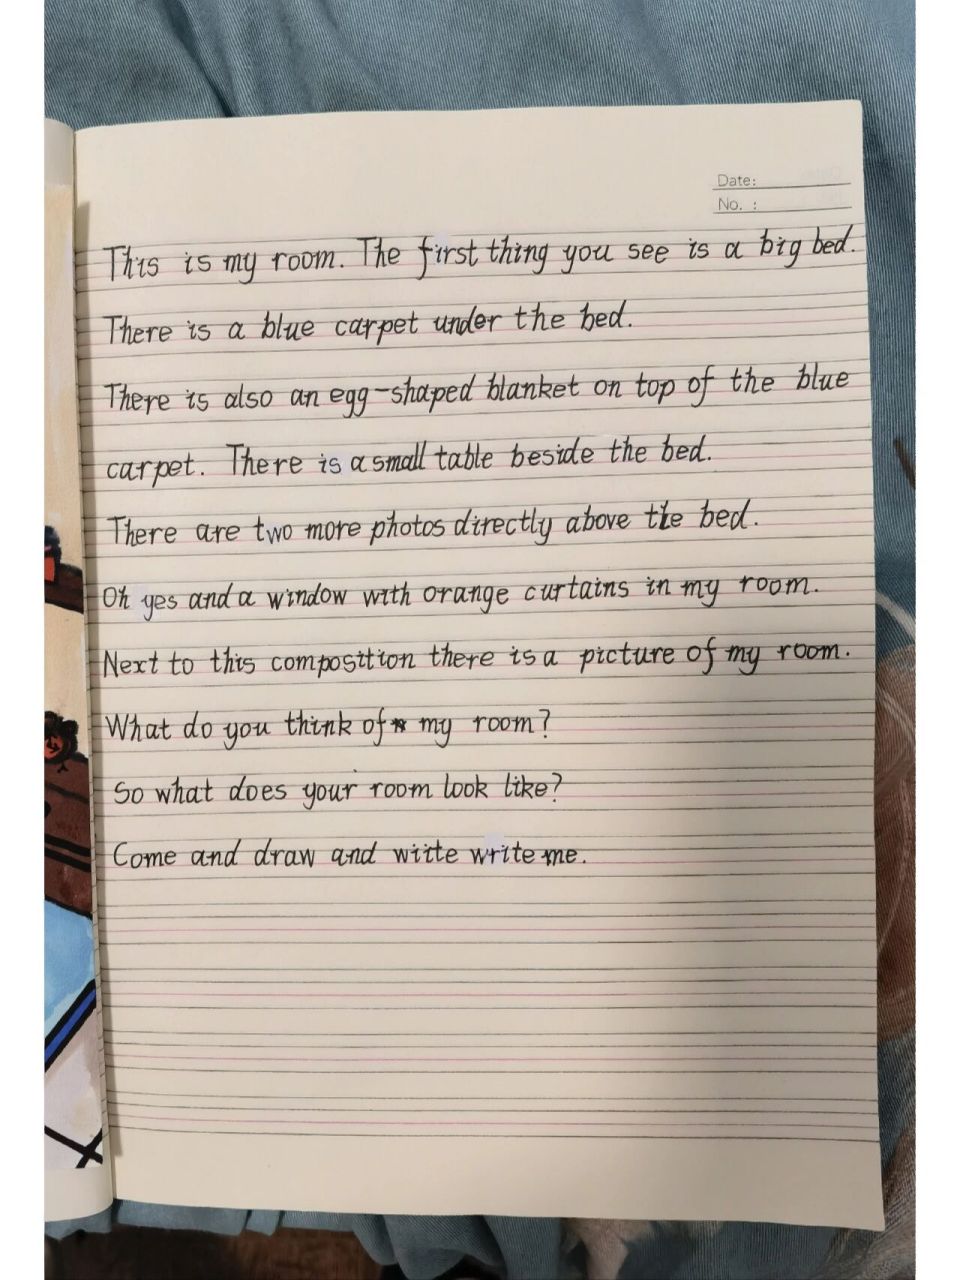 Date:
No. :
This is my room. The first thing you see is a big bed.
There is a blue carpet under the bed.
There is also an egg-shaped blanket on top of the blue
carpet. There is a small table beside the bed.
There are two more photos directly above the bed.
Oh yes and a window with orange curtains in my room.
Next to this composition there is a picture of my room.
What do you think of my room?
So what does your room look like?
Come and draw and wiite write me.